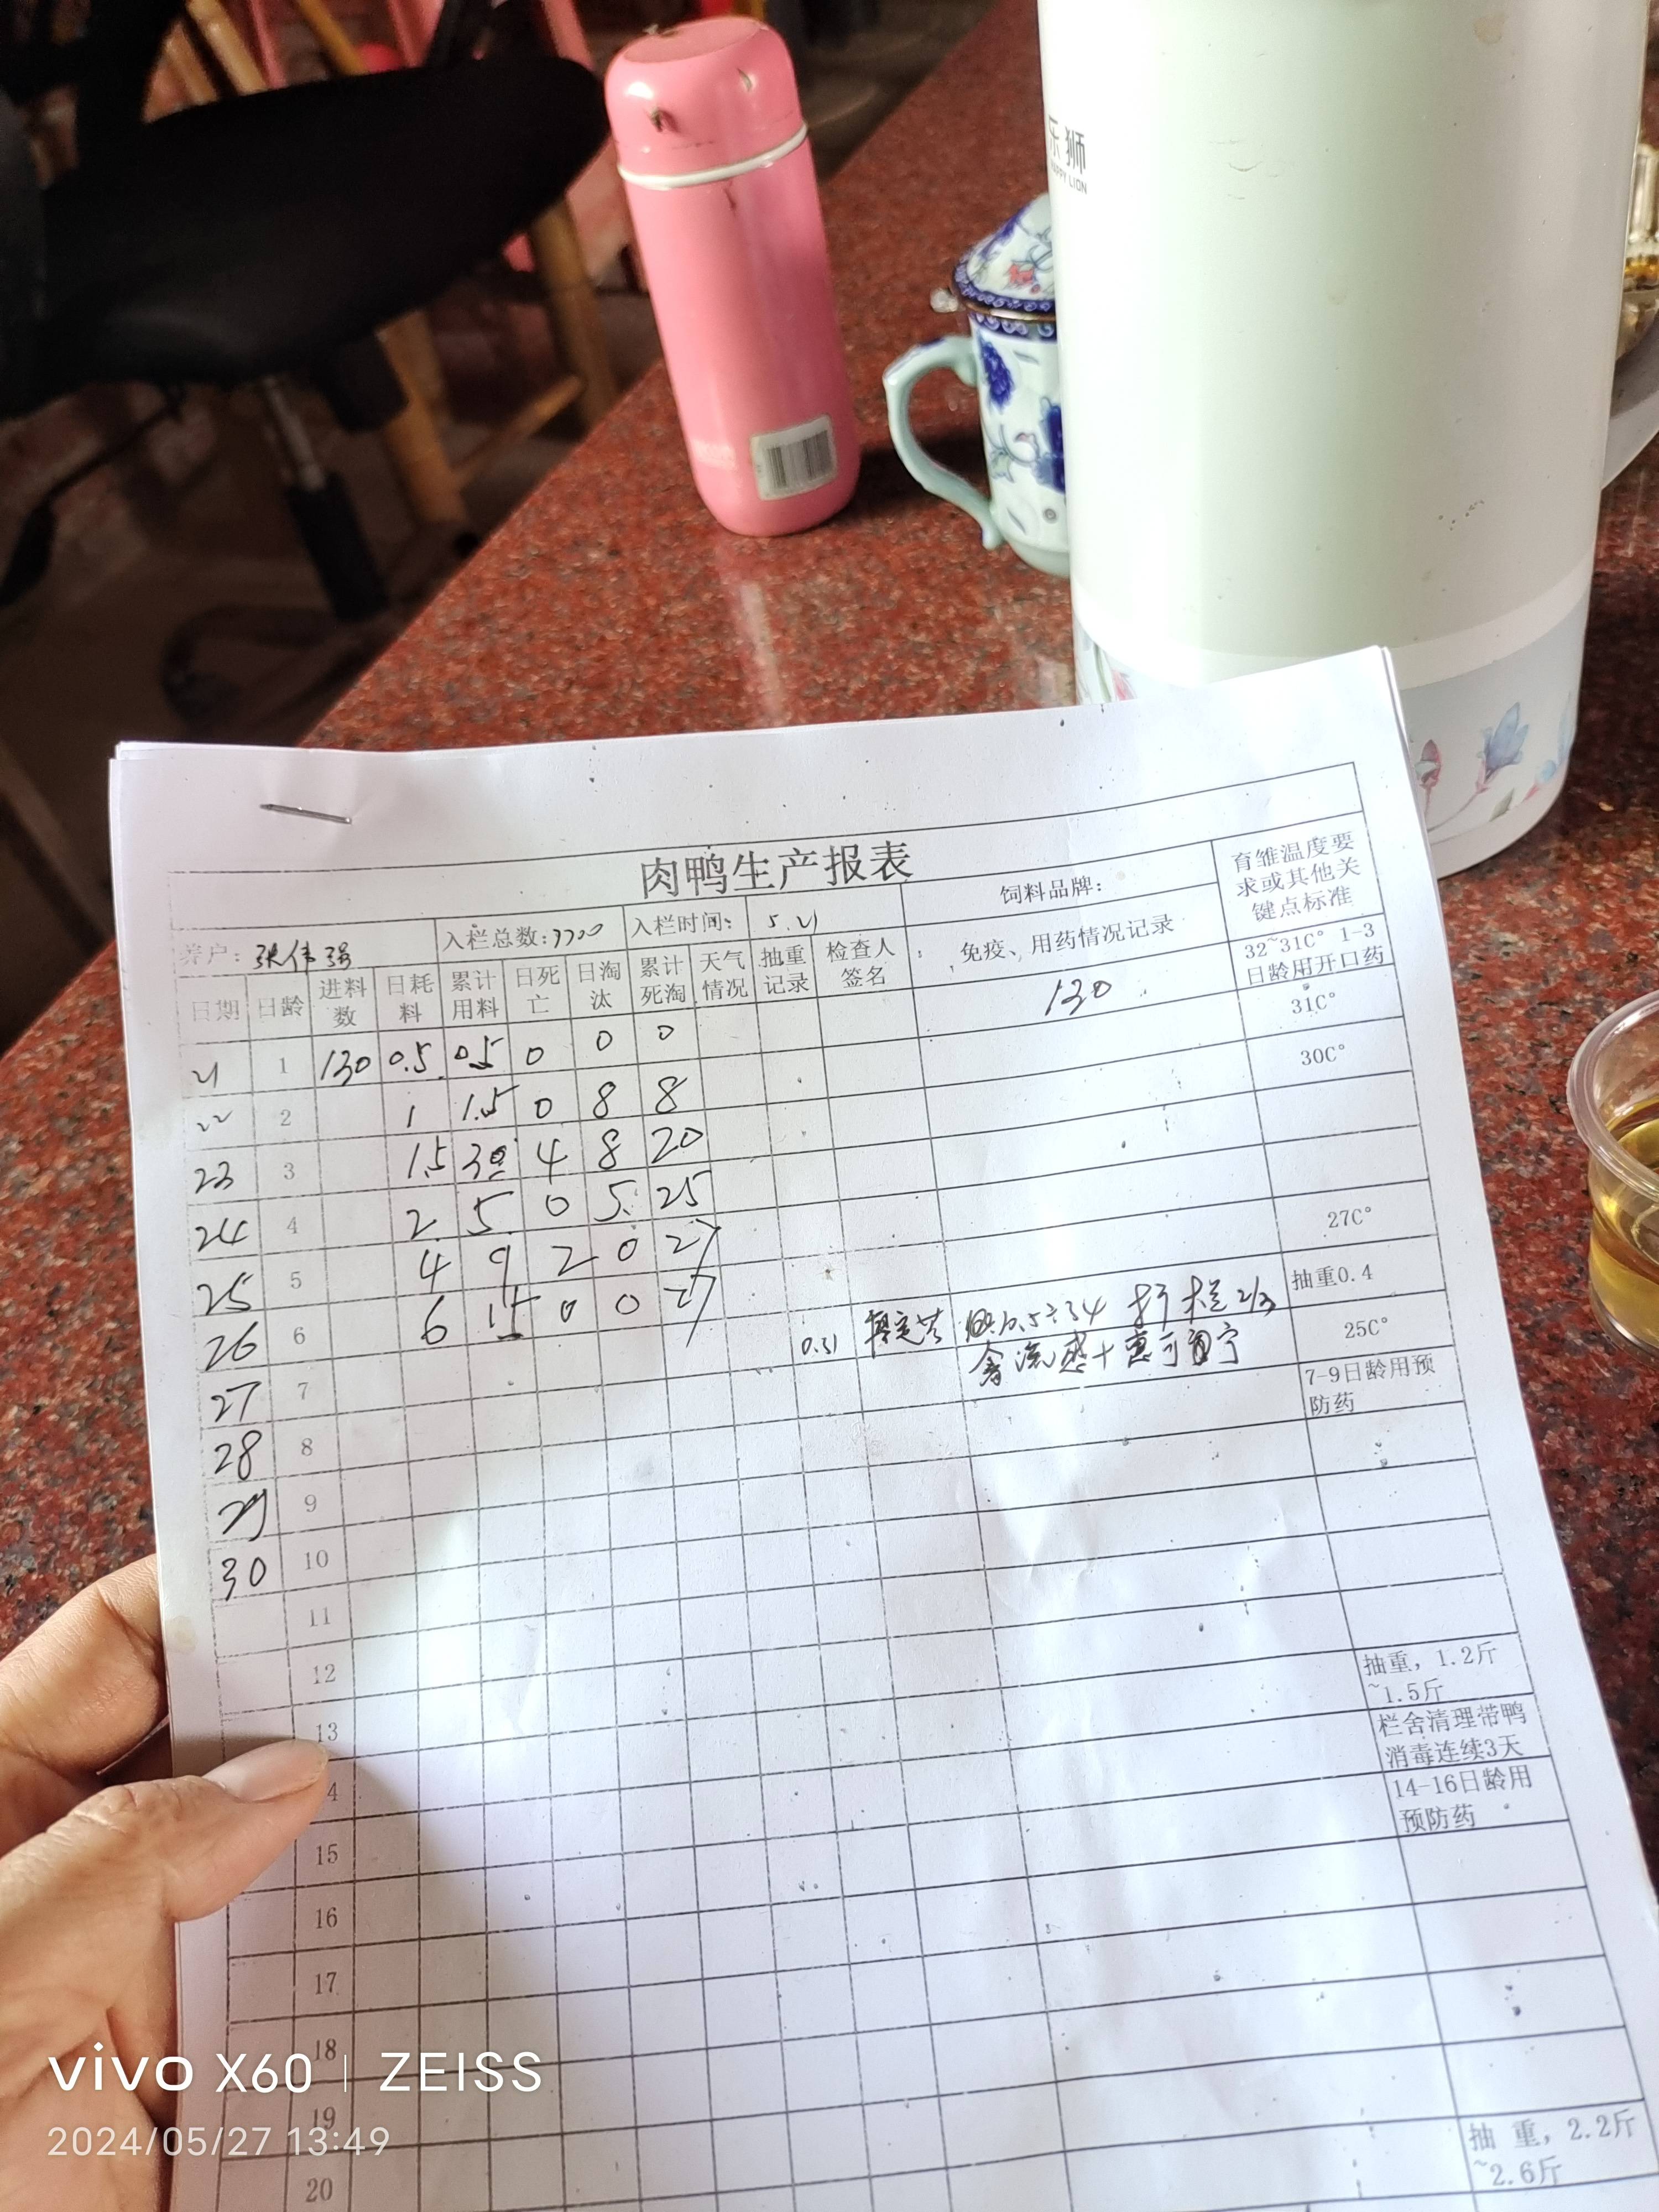 乐狮
HAPPY LION
肉鸭生产报表
饲料品牌：
育雏温度要求或其他关键点标准
养户：张伟强 入栏总数： 入栏时间： 5.21
日期 日龄 进料数 日耗料 累计用料 日死亡 日淘汰 累计死淘 天气情况 抽重记录 检查人签名 免疫、用药情况记录 32~31C° 1-3日龄用开口药
21 1 130 0.5 0.5 0 0 0 130 31C°
22 2 1 1.5 0 8 8 30C°
23 3 1.5 3 4 8 20
24 4 2 5 0 5 25
25 5 4 9 2 0 27 27C°
26 6 6 15 0 0 27 抽重0.4
0.31 打栏2/3 25C°
禽流感+
27 7 7-9日龄用预防药
28 8
29 9
30 10
11
12 抽重，1.2斤~1.5斤
13 栏舍清理带鸭消毒连续3天
4 14-16日龄用预防药
15
16
17
18
19
20 抽 重，2.2斤~2.6斤
vivo X60 | ZEISS
2024/05/27 13:49